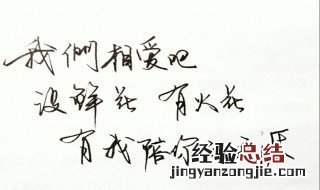 我們相爱吧
没鲜花 有火花
有我陪你
经验总结
www.jingyanzongjie.com